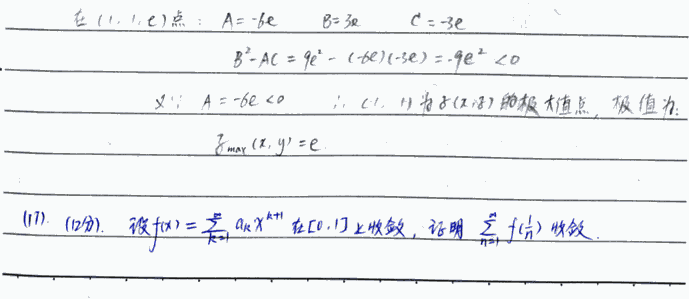 在 (1, 1, e) 点: A = -6e B = 3e C = -3e
B² - AC = 9e² - (-6e)(-3e) = -9e² < 0
又∵ A = -6e < 0 ∴ (1, 1) 为 z(x, y) 的极大值点, 极值为:
z_max (x, y) = e
(17). (12分). 设 f(x) = ∑_{k=1}^{∞} a_k x^{k+1} 在 [0, 1] 上收敛, 证明 ∑_{n=1}^{∞} f(1/n) 收敛.